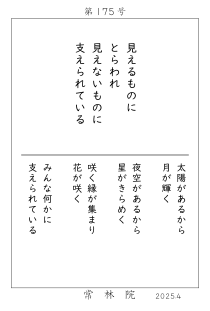 第175号
見えるものに
とらわれ
見えないものに
支えられている
太陽があるから
月が輝く
夜空があるから
星がきらめく
咲く縁が集まり
花が咲く
みんな何かに
支えられている
常林院 2025.4